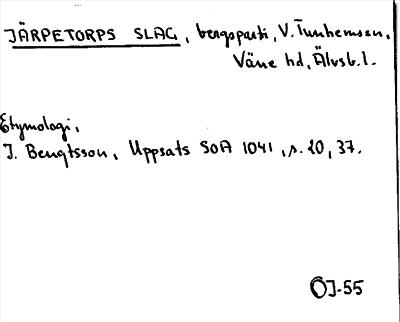 JÄRPETORPS SLAG, bergsparti, V. Tunhemssn,
Väne hd, Älvsb.l.
Etymologi,
J. Bengtsson, Uppsats SOA 1041, s. 20, 37.
ÖJ-55